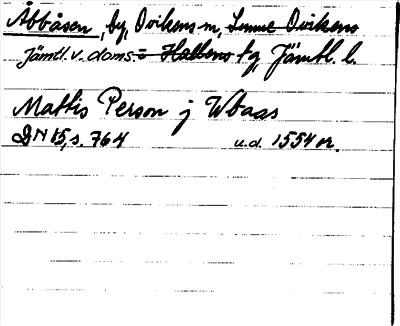 Åbbåsen, by, Ovikens sn, Sunne Ovikens
Jämtl. v. doms.= Hallens tg, Jämtl. l.
Mattis Person j Wbaas
DN 15, s. 764 u.d. 1554 or.